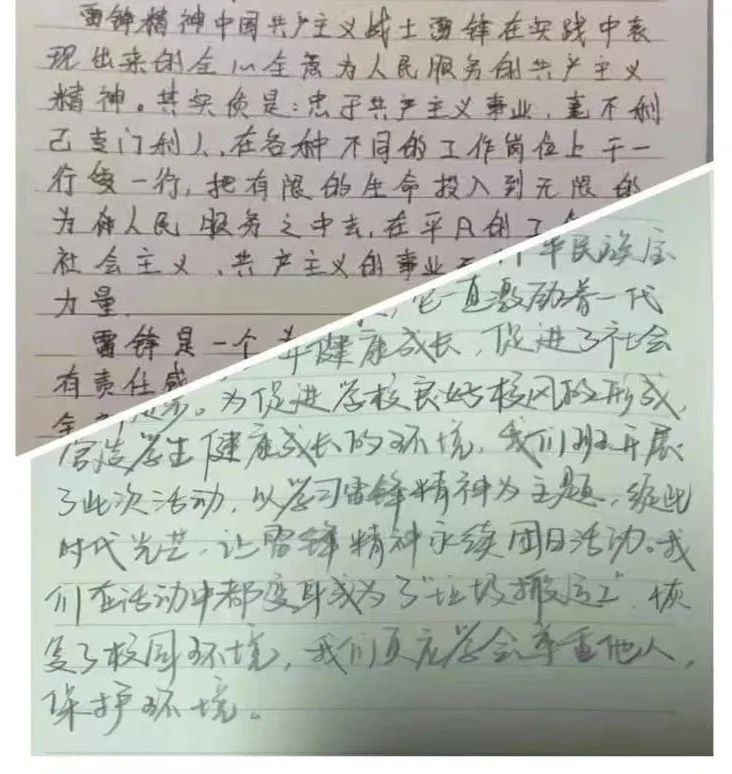 雷锋精神中国共产主义战士雷锋在实践中表
现出来的全心全意为人民服务的共产主义
精神。其实质是：忠于共产主义事业，毫不利
己专门利人，在各种不同的工作岗位上干一
行爱一行，把有限的生命投入到无限的
为人民服务之中去，在平凡的工
社会主义、共产主义的事业
力量.
雷锋是一个
有责任感
华民族宝
它一直激励着一代
健康成长，促进了社会
进步。为促进学校良好校风的形成，
营造学生健康成长的环境，我们班开展
了此次活动，以学习雷锋精神为主题，绽此
时代光芒，让雷锋精神永续团日活动。我
们在活动中都变身成为了"垃圾搬运工"，恢
复了校园环境，我们更应学会尊重他人，
保护环境。